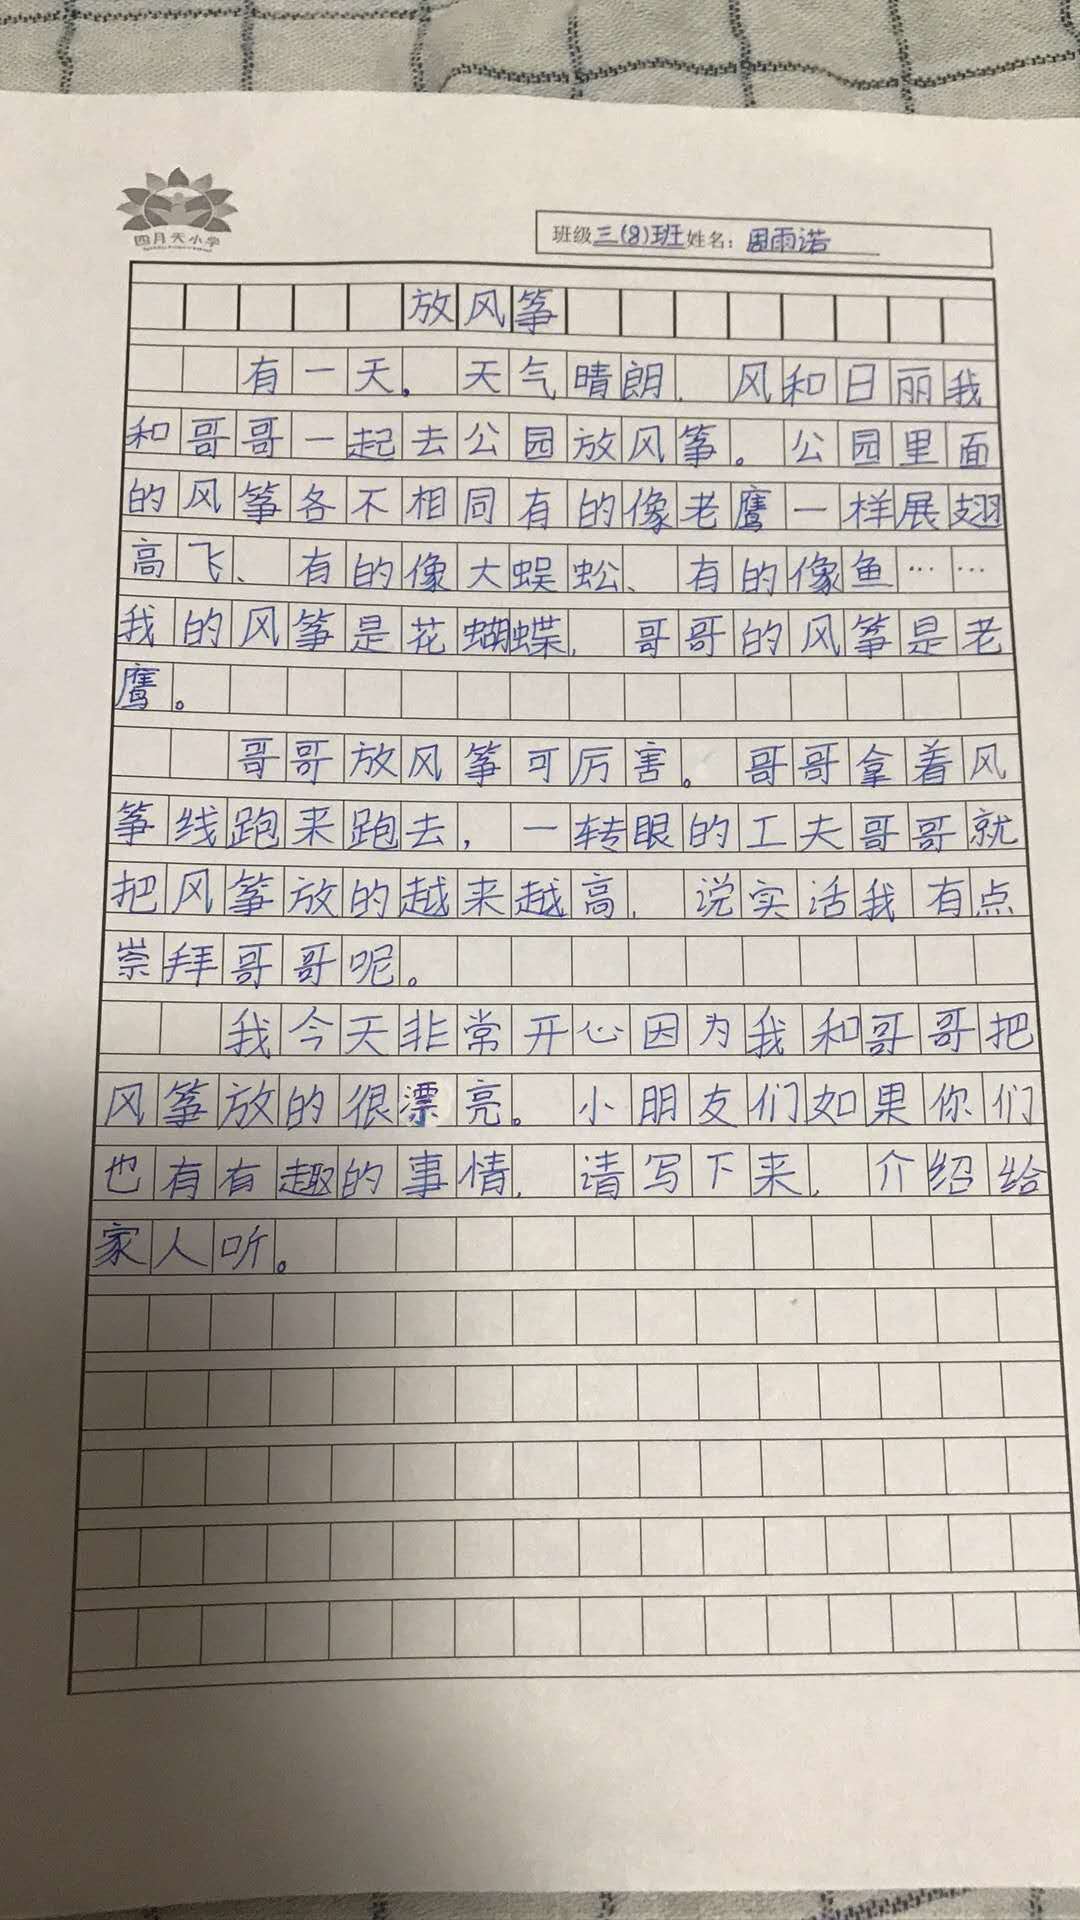 四月天小学
班级三(8)班姓名:周雨诺
放风筝
有一天，天气晴朗，风和日丽我
和哥哥一起去公园放风筝。公园里面
的风筝各不相同有的像老鹰一样展翅
高飞、有的像大蜈蚣、有的像鱼……
我的风筝是花蝴蝶，哥哥的风筝是老
鹰。
哥哥放风筝可厉害。哥哥拿着风
筝线跑来跑去，一转眼的工夫哥哥就
把风筝放的越来越高，说实活我有点
崇拜哥哥呢。
我今天非常开心因为我和哥哥把
风筝放的很漂亮。小朋友们如果你们
也有有趣的事情，请写下来，介绍给
家人听。